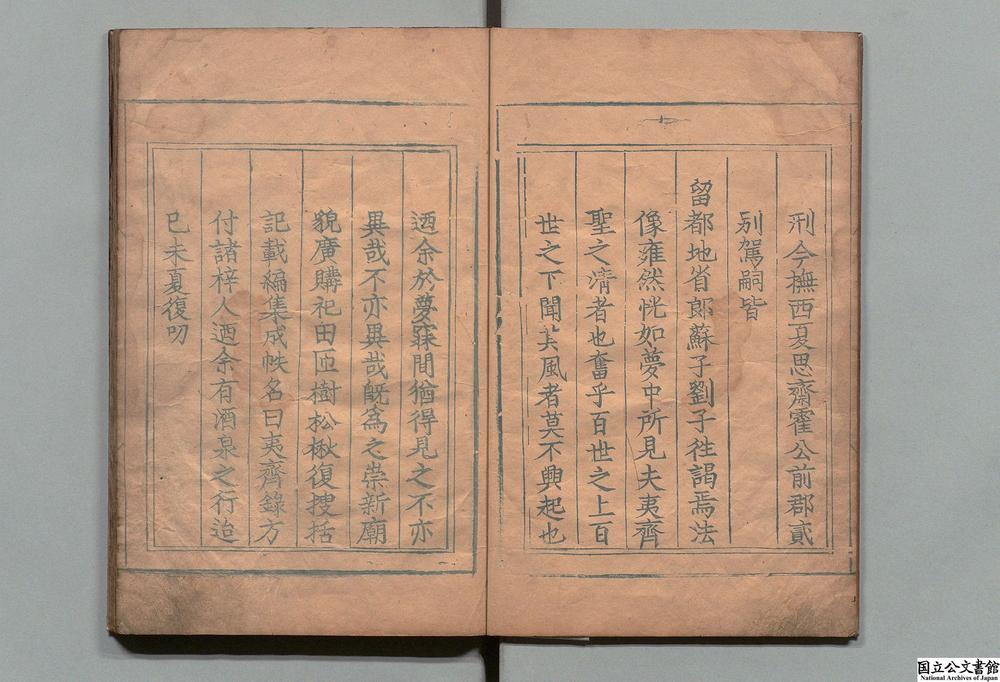 刑今撫西夏思齋霍公前郡貳
別駕嗣皆
留都地省郎蘇子劉子徃謁焉法
像雍然恍如夢中所見夫夷齊
聖之清者也奮乎百世之上百
世之下聞其風者莫不興起也
迺余於夢寐間猶得見之不亦
異哉不亦異哉旣爲之崇新廟
貌廣購祀田匝樹松楸復搜括
記載編集成帙名曰夷齊錄方
付諸梓人迺余有酒泉之行迨
己未夏復叨
国立公文書館
National Archives of Japan